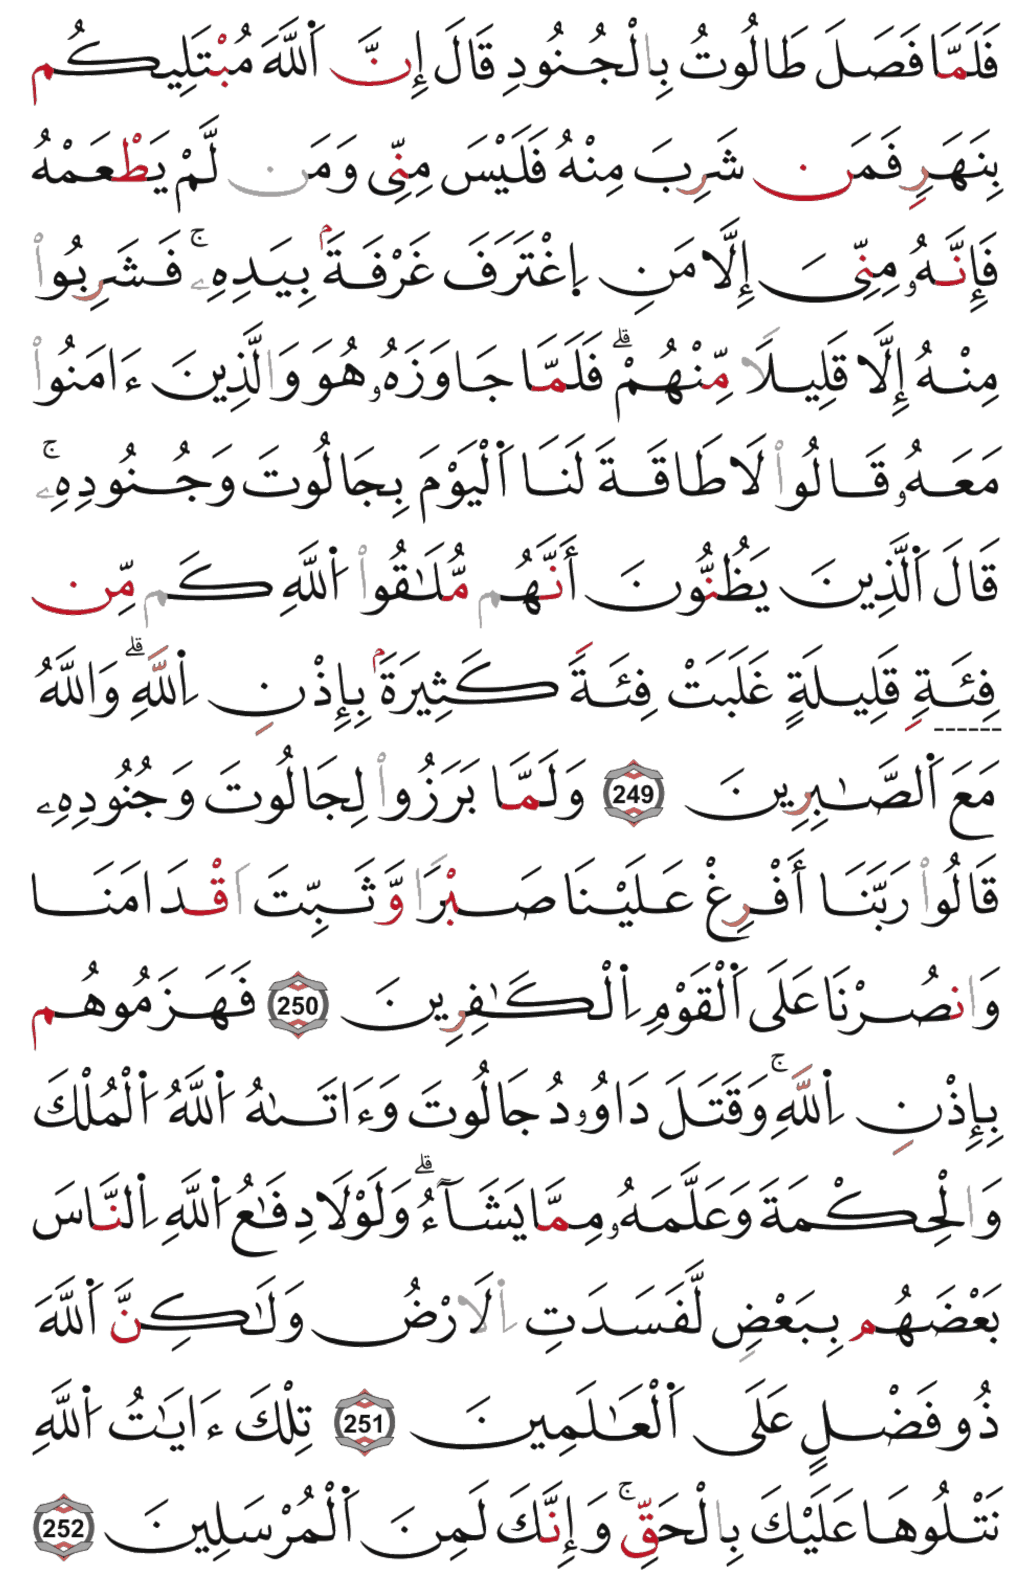 فَلَمَّا فَصَلَ طَالُوتُ بِالْجُنُودِ قَالَ إِنَّ اَللَّهَ مُبْتَلِيكُم
بِنَهَرٍ فَمَن شَرِبَ مِنْهُ فَلَيْسَ مِنِّي وَمَن لَّمْ يَطْعَمْهُ
فَإِنَّهُۥ مِنِّيَ إِلَّا مَنِ اِغْتَرَفَ غَرْفَةَۢ بِيَدِهِۦۚ فَشَرِبُواْ
مِنْهُ إِلَّا قَلِيلًا مِّنْهُمْۗ فَلَمَّا جَاوَزَهُۥ هُوَ وَالَّذِينَ ءَامَنُواْ
مَعَهُۥ قَالُواْ لَا طَاقَةَ لَنَا اَلْيَوْمَ بِجَالُوتَ وَجُنُودِهِۦۚ
قَالَ اَلَّذِينَ يَظُنُّونَ أَنَّهُم مُّلَٰقُواْ اُللَّهِ كَم مِّن
فِئَةٍ قَلِيلَةٍ غَلَبَتْ فِئَةً كَثِيرَةَۢ بِإِذْنِ اِللَّهِۗ وَاللَّهُ
مَعَ اَلصَّٰبِرِينَ 249 وَلَمَّا بَرَزُواْ لِجَالُوتَ وَجُنُودِهِۦ
قَالُواْ رَبَّنَا أَفْرِغْ عَلَيْنَا صَبْرًا وَّثَبِّتَ اَقْدَامَنَا
وَانصُرْنَا عَلَى اَلْقَوْمِ اِلْكَٰفِرِينَ 250 فَهَزَمُوهُم
بِإِذْنِ اِللَّهِۚ وَقَتَلَ دَاوُۥدُ جَالُوتَ وَءَاتَىٰهُ اُللَّهُ اُلْمُلْكَ
وَالْحِكْمَةَ وَعَلَّمَهُۥ مِمَّا يَشَآءُۗ وَلَوْلَا دِفَٰعُ اُللَّهِ اِلنَّاسَ
بَعْضَهُم بِبَعْضٍ لَّفَسَدَتِ اِلَارْضُ وَلَٰكِنَّ اَللَّهَ
ذُو فَضْلٍ عَلَى اَلْعَٰلَمِينَ 251 تِلْكَ ءَايَٰتُ اُللَّهِ
نَتْلُوهَا عَلَيْكَ بِالْحَقِّۚ وَإِنَّكَ لَمِنَ اَلْمُرْسَلِينَ 252